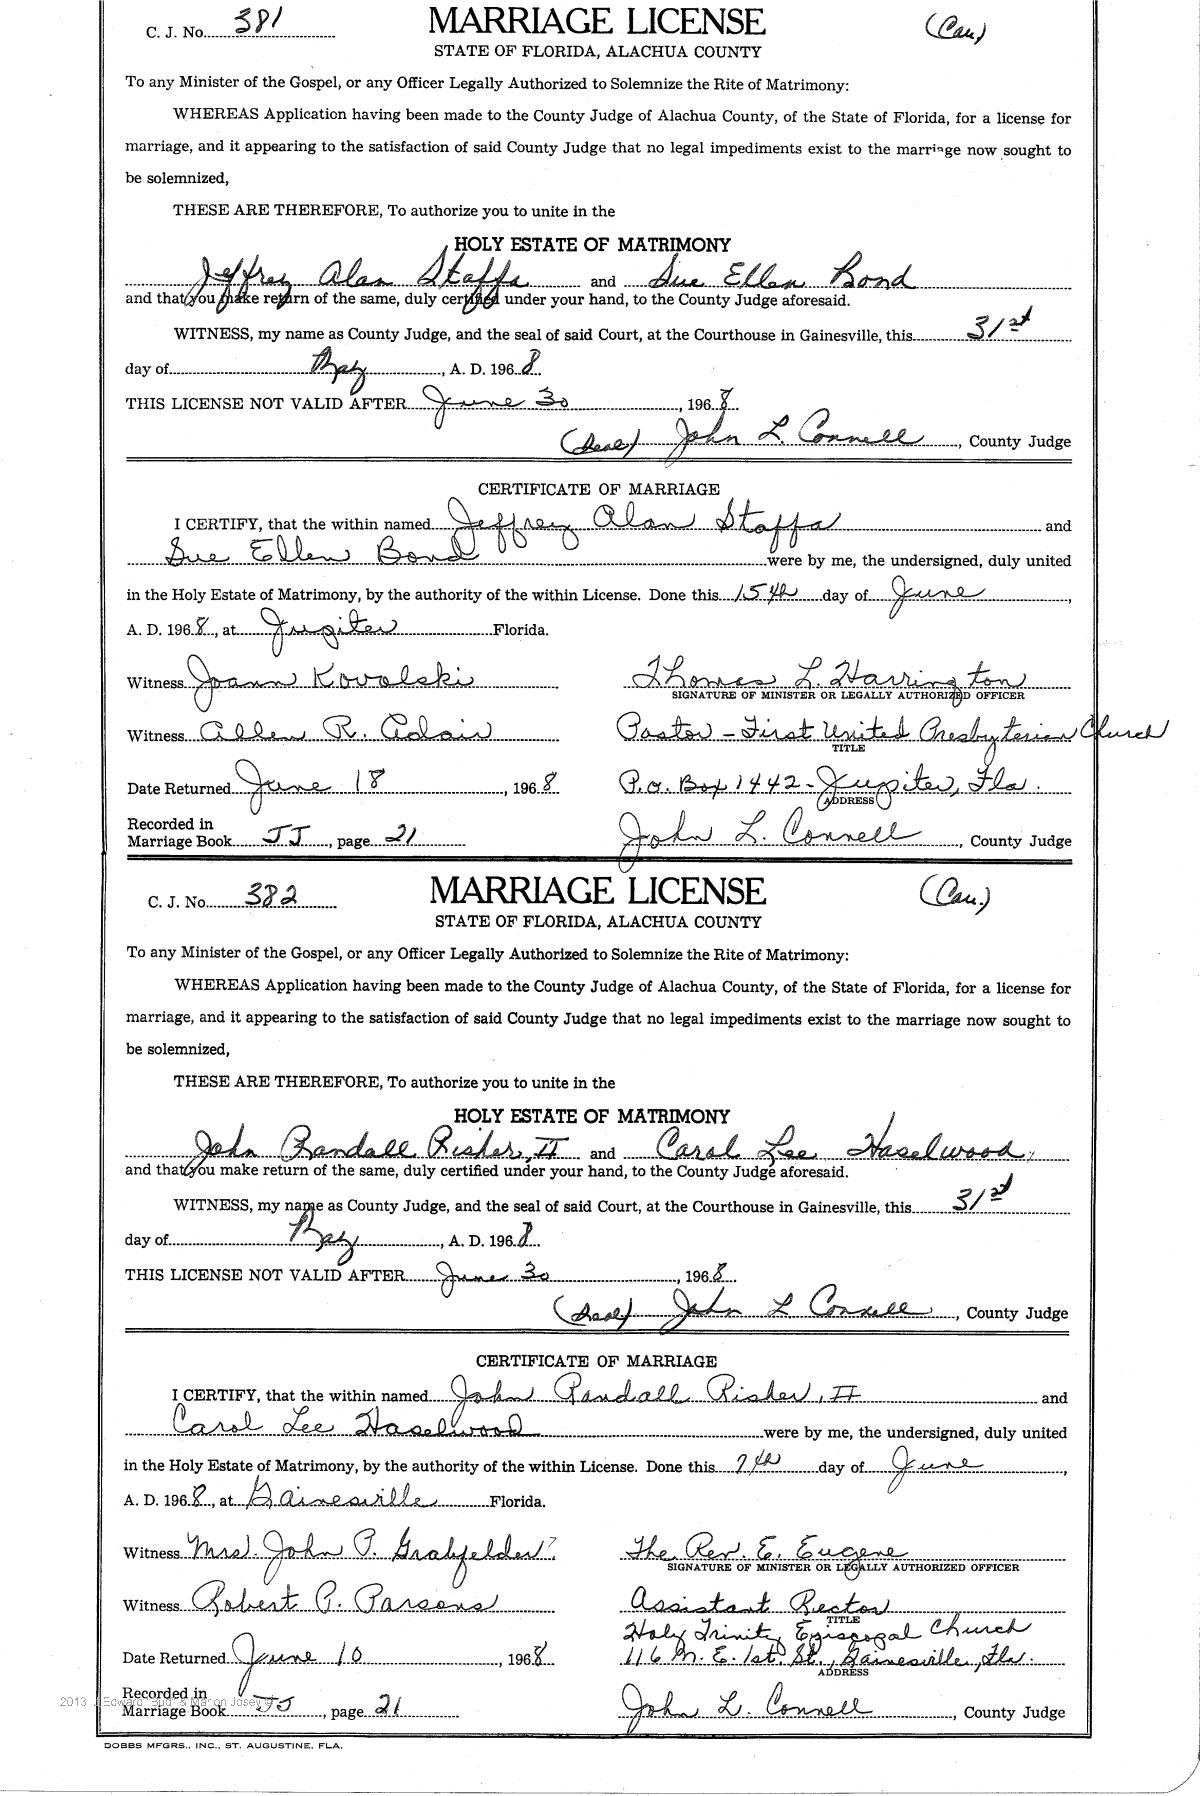 C. J. No. 381 MARRIAGE LICENSE (Cau.)
STATE OF FLORIDA, ALACHUA COUNTY
To any Minister of the Gospel, or any Officer Legally Authorized to Solemnize the Rite of Matrimony:
WHEREAS Application having been made to the County Judge of Alachua County, of the State of Florida, for a license for
marriage, and it appearing to the satisfaction of said County Judge that no legal impediments exist to the marriage now sought to
be solemnized,
THESE ARE THEREFORE, To authorize you to unite in the
HOLY ESTATE OF MATRIMONY
Jeffrey Alan Staffa and Sue Ellen Bond
and that you make return of the same, duly certified under your hand, to the County Judge aforesaid.
WITNESS, my name as County Judge, and the seal of said Court, at the Courthouse in Gainesville, this 31st
day of May, A. D. 1968.
THIS LICENSE NOT VALID AFTER June 30, 1968.
(Seal) John L. Connell, County Judge
CERTIFICATE OF MARRIAGE
I CERTIFY, that the within named Jeffrey Alan Staffa and
Sue Ellen Bond were by me, the undersigned, duly united
in the Holy Estate of Matrimony, by the authority of the within License. Done this 15th day of June,
A. D. 1968, at Jupiter Florida.
Witness Joann Kovalski Thomas L. Harrington
SIGNATURE OF MINISTER OR LEGALLY AUTHORIZED OFFICER
Witness Allen R. Adair Pastor - First United Presbyterian Church
TITLE
Date Returned June 18, 1968 P.O. Box 1442 - Jupiter, Fla.
ADDRESS
Recorded in
Marriage Book JJ, page 21 John L. Connell, County Judge
C. J. No. 382 MARRIAGE LICENSE (Cau.)
STATE OF FLORIDA, ALACHUA COUNTY
To any Minister of the Gospel, or any Officer Legally Authorized to Solemnize the Rite of Matrimony:
WHEREAS Application having been made to the County Judge of Alachua County, of the State of Florida, for a license for
marriage, and it appearing to the satisfaction of said County Judge that no legal impediments exist to the marriage now sought to
be solemnized,
THESE ARE THEREFORE, To authorize you to unite in the
HOLY ESTATE OF MATRIMONY
John Randall Risher, II and Carol Lee Haselwood,
and that you make return of the same, duly certified under your hand, to the County Judge aforesaid.
WITNESS, my name as County Judge, and the seal of said Court, at the Courthouse in Gainesville, this 31st
day of May, A. D. 1968.
THIS LICENSE NOT VALID AFTER June 30, 1968.
(Seal) John L. Connell, County Judge
CERTIFICATE OF MARRIAGE
I CERTIFY, that the within named John Randall Risher, II and
Carol Lee Haselwood were by me, the undersigned, duly united
in the Holy Estate of Matrimony, by the authority of the within License. Done this 7th day of June,
A. D. 1968, at Gainesville Florida.
Witness Mrs. John P. Grabfelder? The Rev. E. Eugene
SIGNATURE OF MINISTER OR LEGALLY AUTHORIZED OFFICER
Witness Robert P. Parsons Assistant Rector
TITLE
Holy Trinity Episcopal Church
Date Returned June 10, 1968 116 N. E. 1st. St., Gainesville, Fla.
ADDRESS
Recorded in
Marriage Book JJ, page 21 John L. Connell, County Judge
2013 J Edward "Bud" & Marion Josey ©
DOBBS MFGRS., INC., ST. AUGUSTINE, FLA.